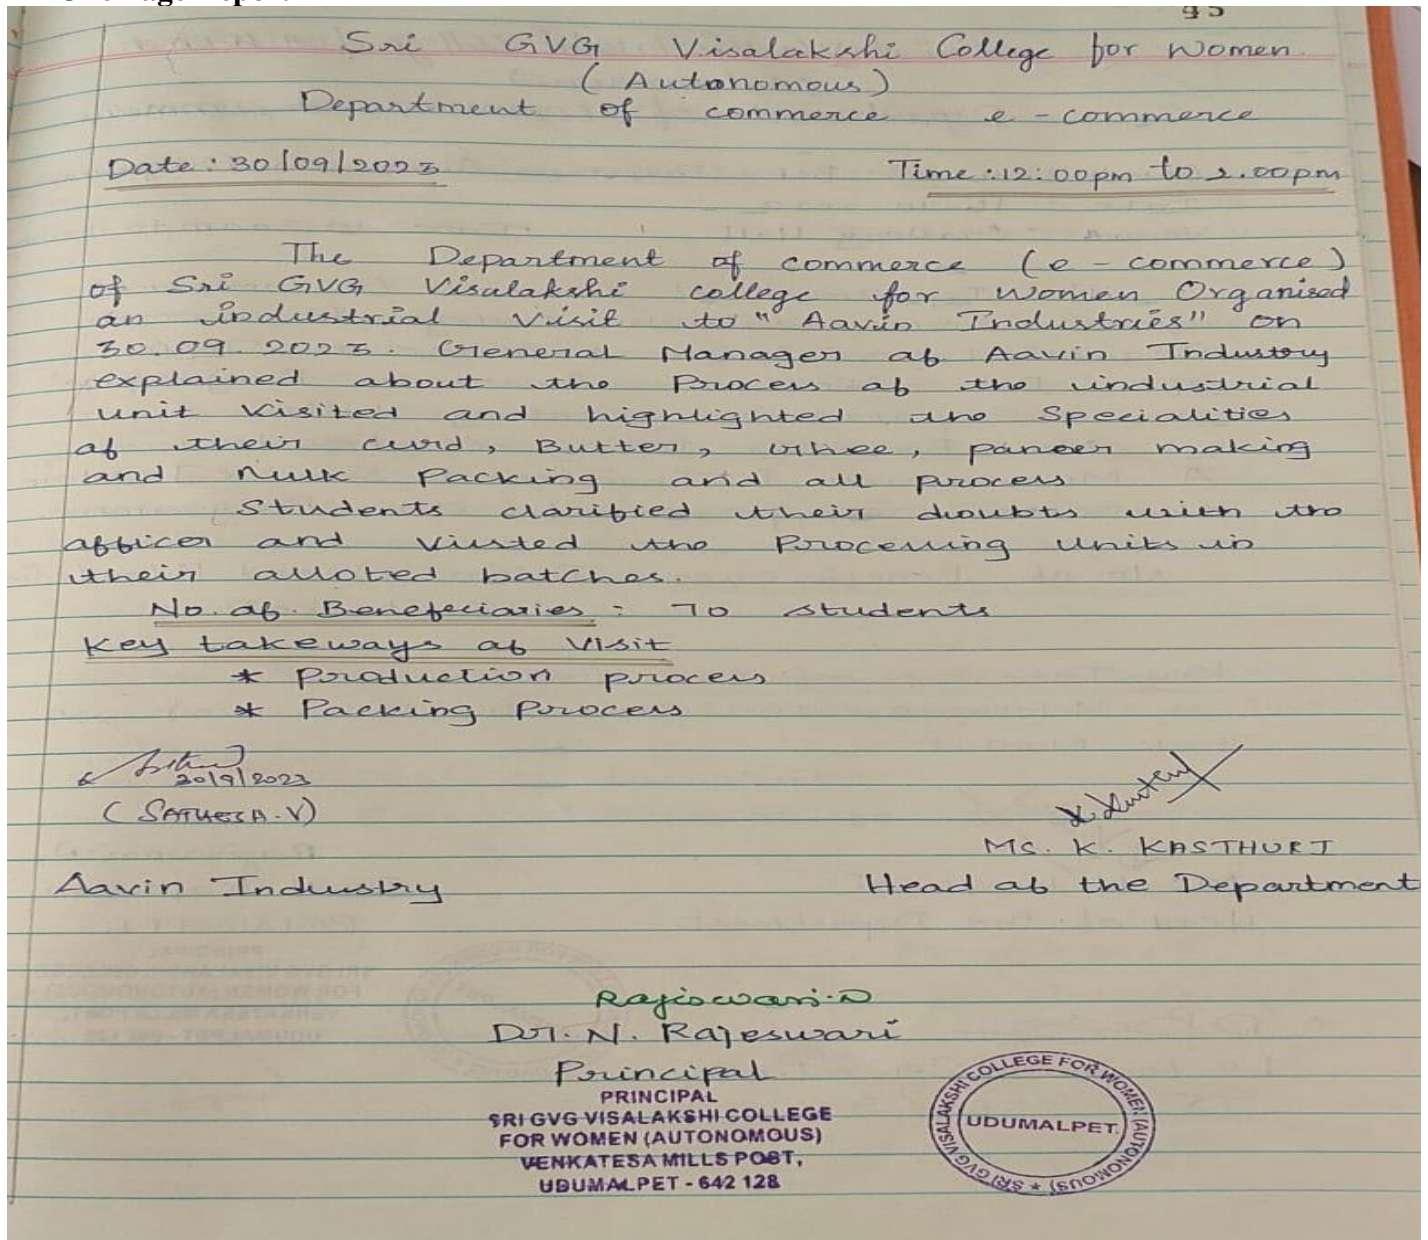 45
Sri GVG Visalakshi College for Women
(Autonomous)
Department of commerce e-commerce
Date: 30/09/2023 Time: 12:00pm to 2.00pm
The Department of commerce (e-commerce)
of Sri GVG Visalakshi college for Women Organised
an industrial visit to "Aavin Industries" on
30.09.2023. General Manager of Aavin Industry
explained about the Process of the industrial
unit visited and highlighted the Specialities
of their curd, Butter, Ghee, paneer making
and Milk Packing and all process
Students clarified their doubts with the
officer and visted the Processing Units in
their alloted batches.
No. of. Beneficiaries: 70 Students
Key takeways of Visit
* Production process
* Packing Process
30/9/2023
(SATHEESH.V) 
Ms. K. KASTHURI
Aavin Industry Head of the Department
Rajiswari.N
Dr. N. Rajeswari
Principal
PRINCIPAL
SRI GVG VISALAKSHI COLLEGE
FOR WOMEN (AUTONOMOUS)
VENKATESA MILLS POST,
UDUMALPET - 642 128
SRI GVG VISALAKSHI COLLEGE FOR WOMEN (AUTONOMOUS) *
UDUMALPET.